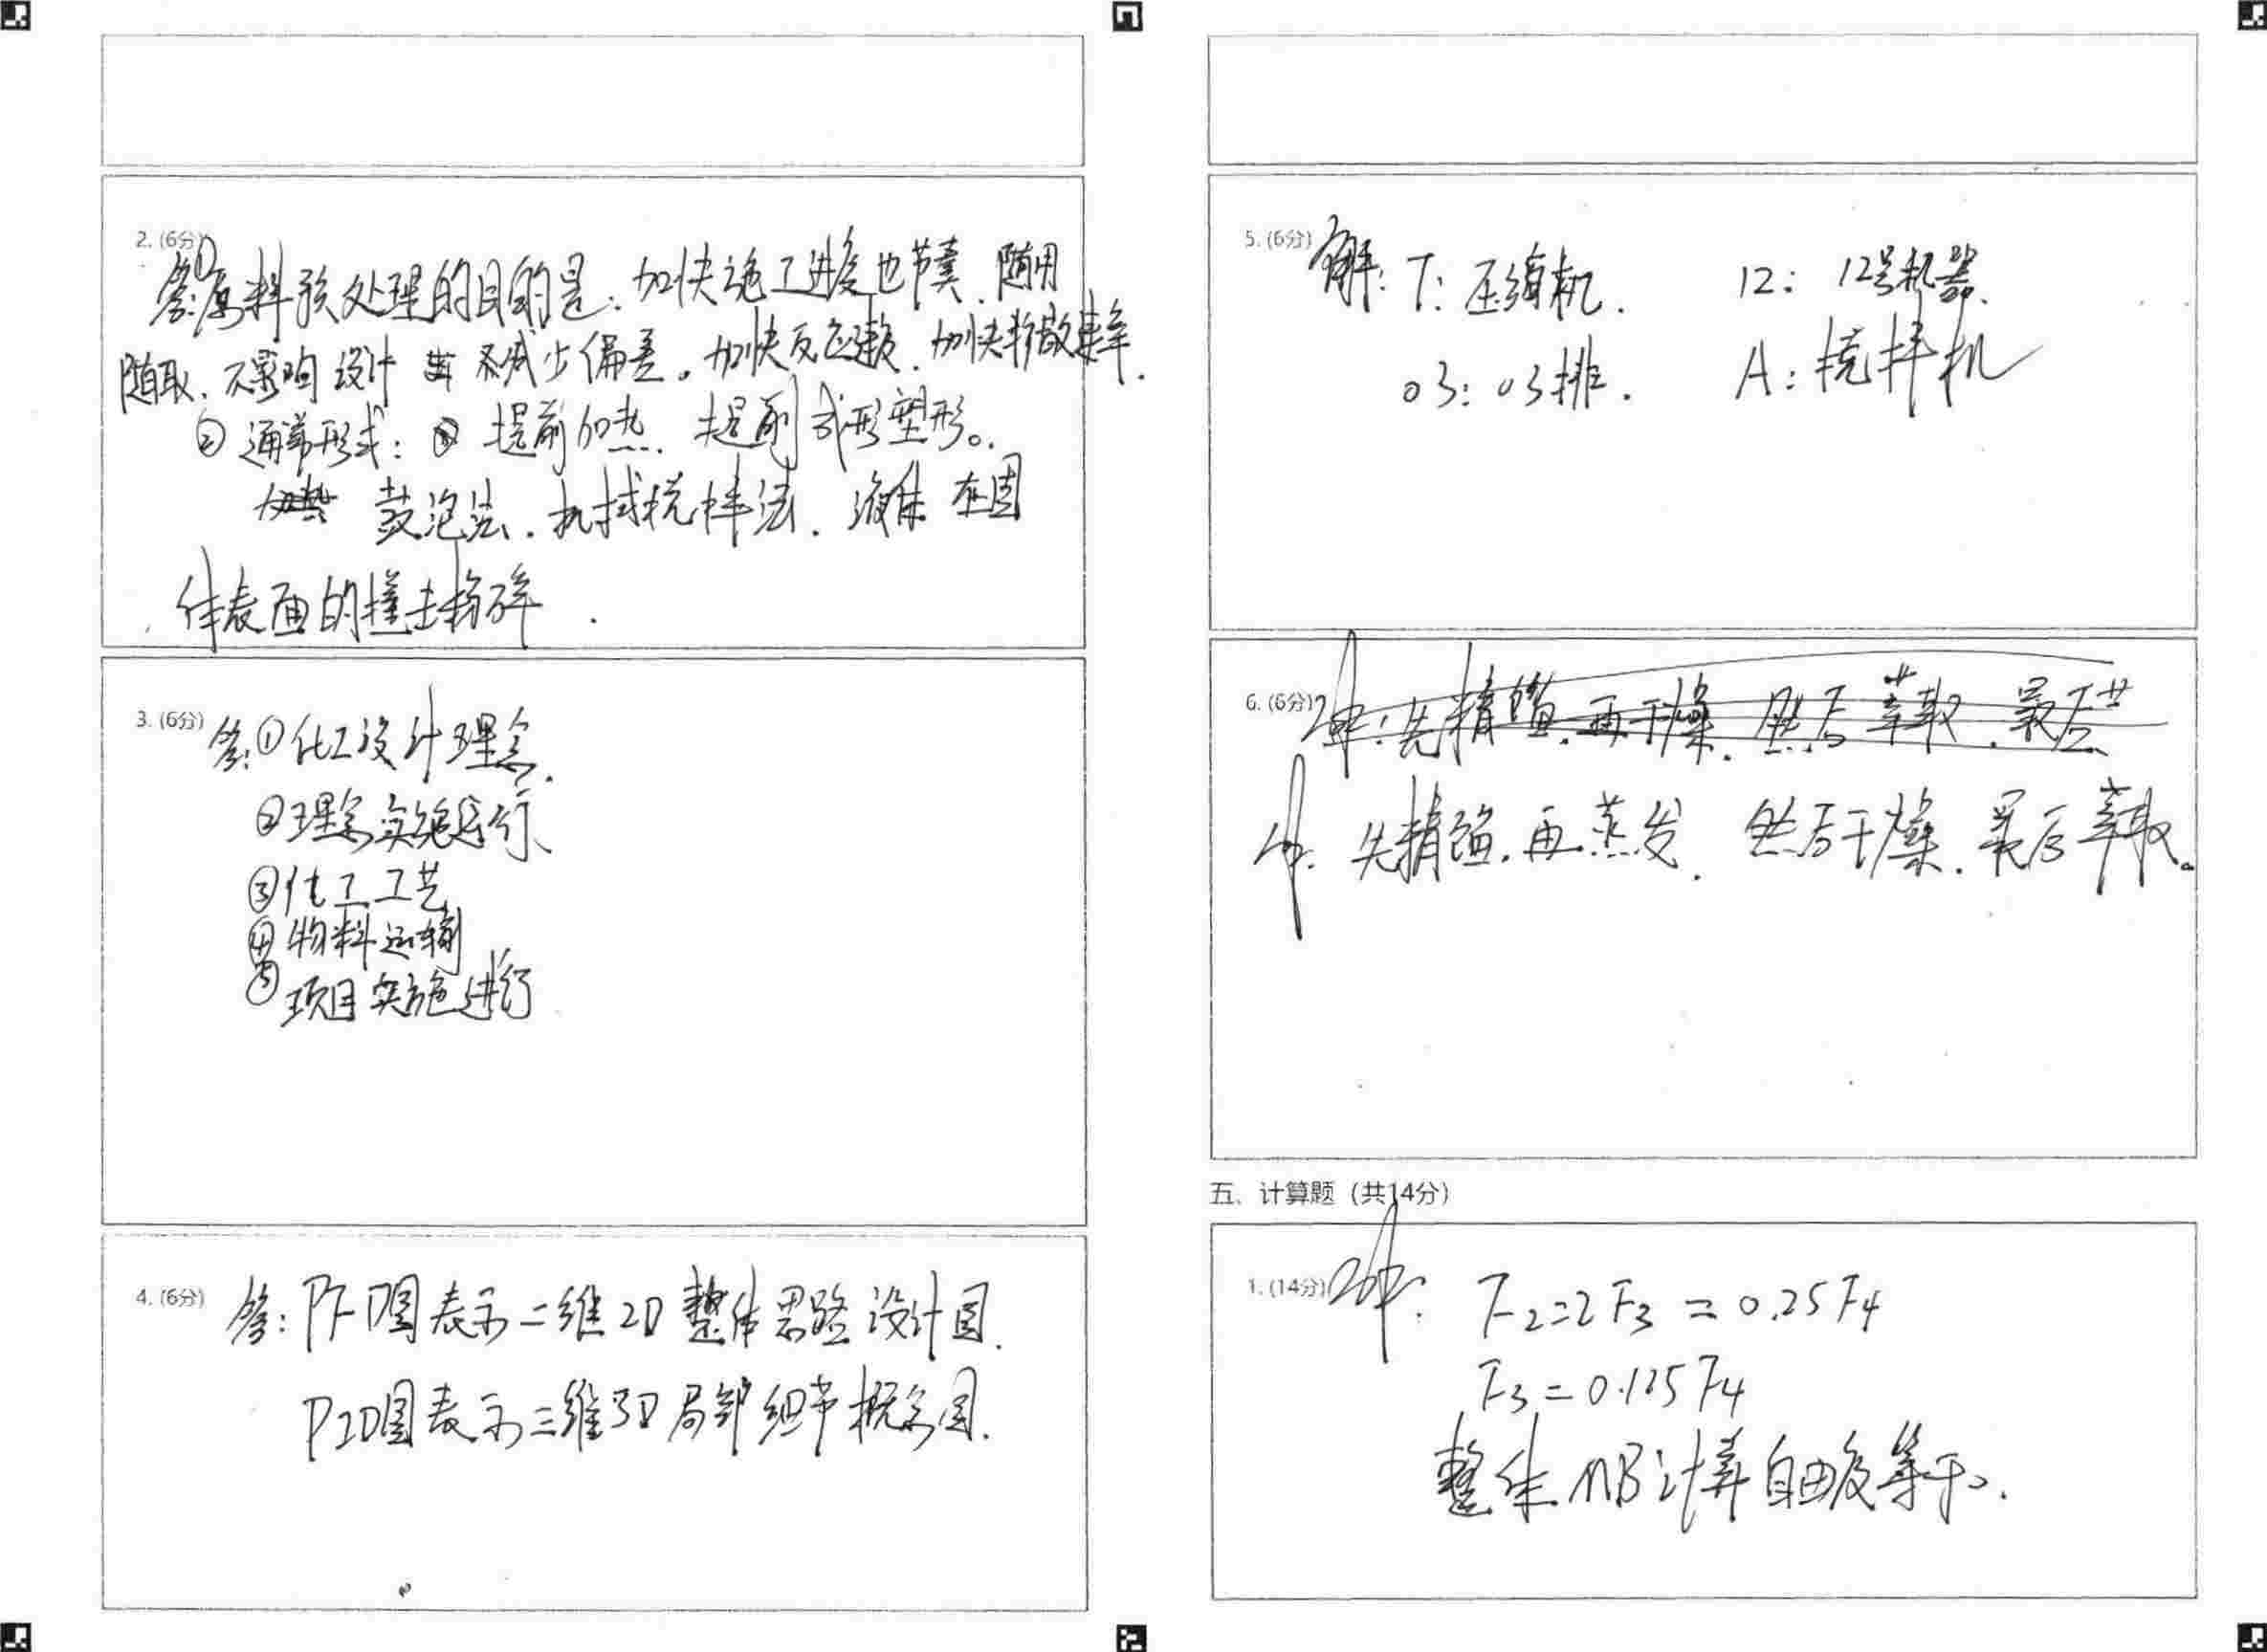 2. (6分)
答:①原料预处理的目的是:加快施工进度也节奏、随用
随取、不影响设计 减少偏差。加快反应速度、加快扩散速率.
② 通常形式: 提前加热、提前成形塑形。
鼓泡法、机械搅拌法、液体在固
体表面的撞击粉碎.
3. (6分) 答:①化工设计理念、
②理念实施运行、
③化工工艺
④物料运输
⑤项目实施进行
4. (6分) 答:PFD图表示二维2D整体思路设计图.
PID图表示三维3D局部细节概念图.
5. (6分) 解: T: 压缩机. 12: 12号机器.
03: 03排. A: 搅拌机
6. (6分) 解:先精馏、再干燥、然后萃取、最后
解: 先精馏、再蒸发、然后干燥、最后萃取。
五、计算题(共14分)
1. (14分) 解: F2=2F3=0.25F4
F3=0.125F4
整体MB计算自由度等于0.